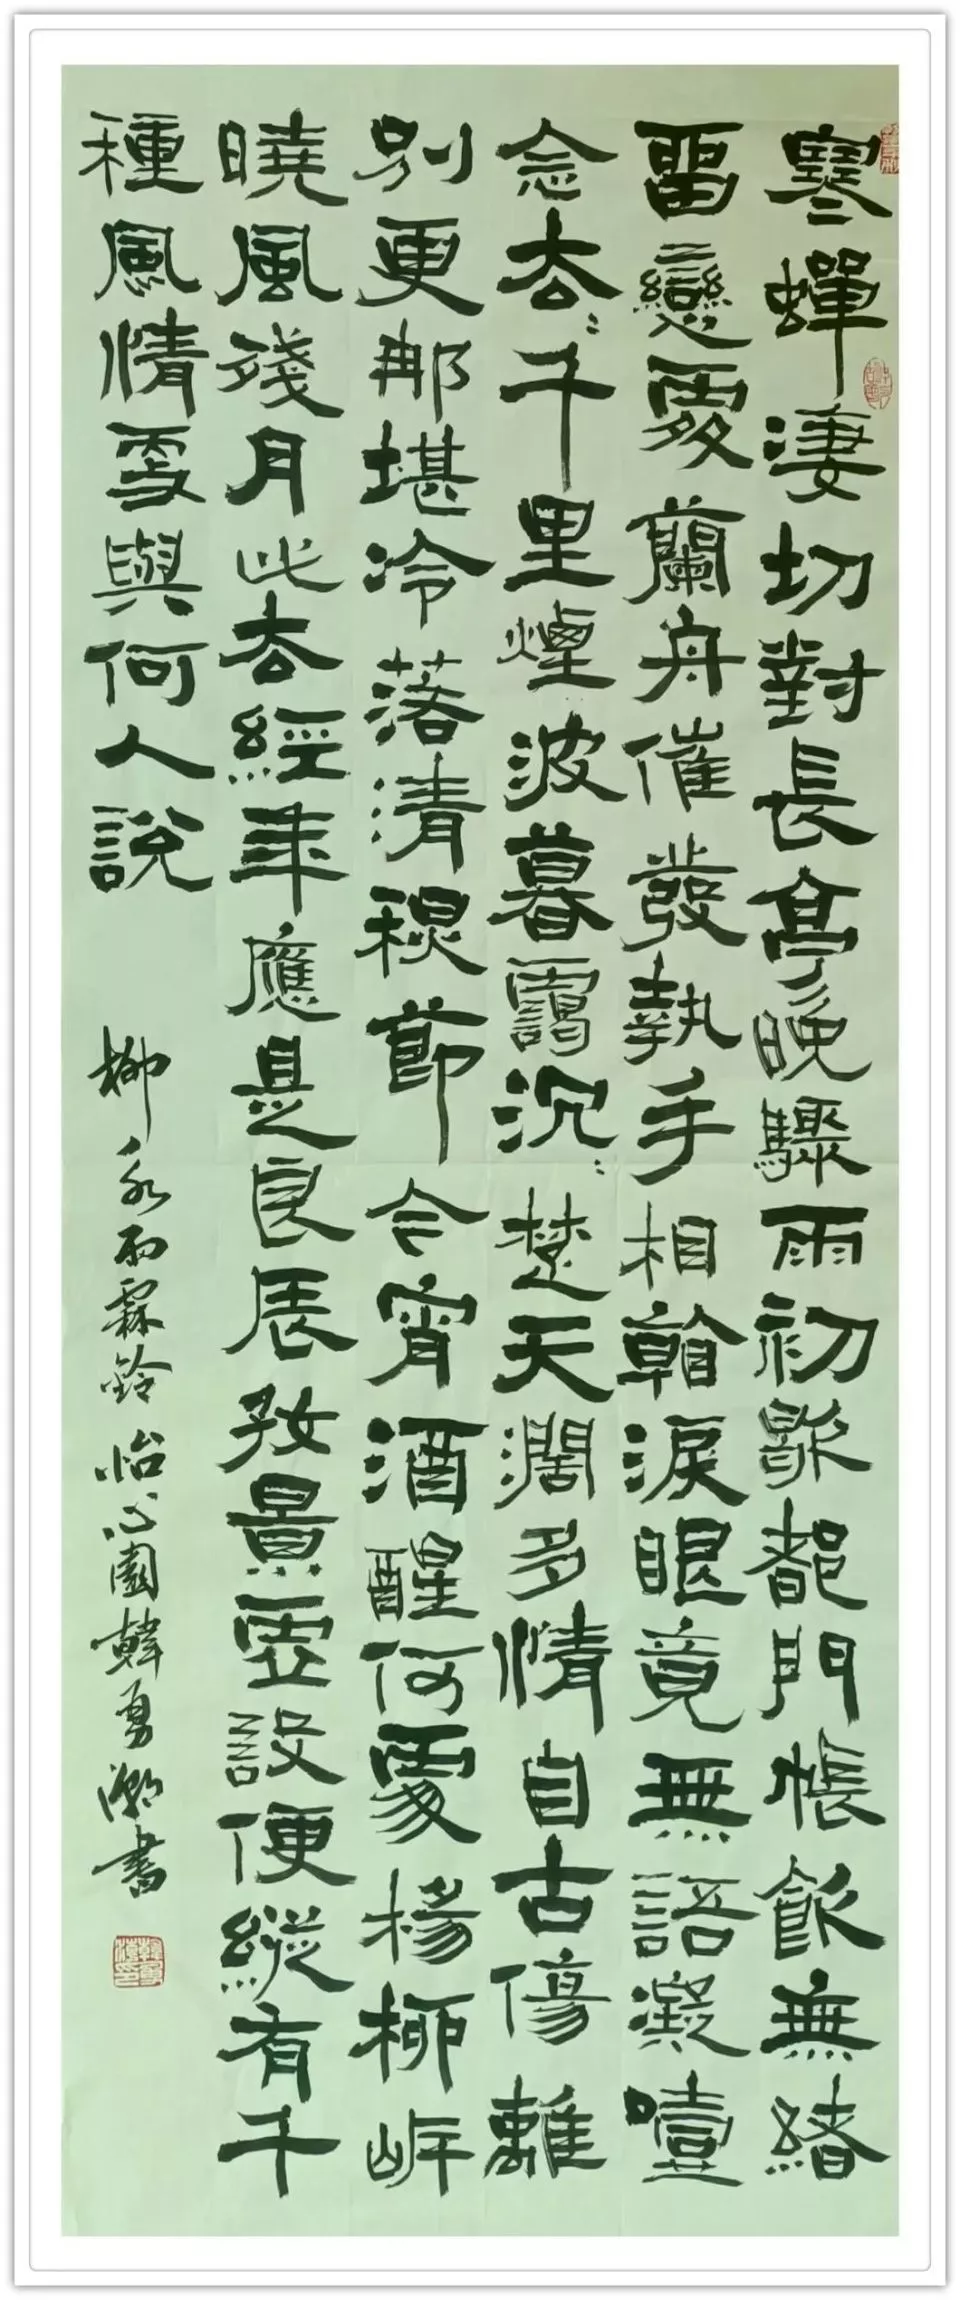 寒蟬淒切對長亭晚驟雨初歇都門帳飲無緒
畱戀處蘭舟催發執手相看淚眼竟無語凝噎
念去〻千里煙波暮靄沉〻楚天濶多情自古傷離
別更那堪冷落清秋節今宵酒醒何處楊柳岸
曉風殘月此去經年應是良辰好景虛設便縱有千
種風情更與何人說 柳永雨霖鈴 怡心園韓勇書